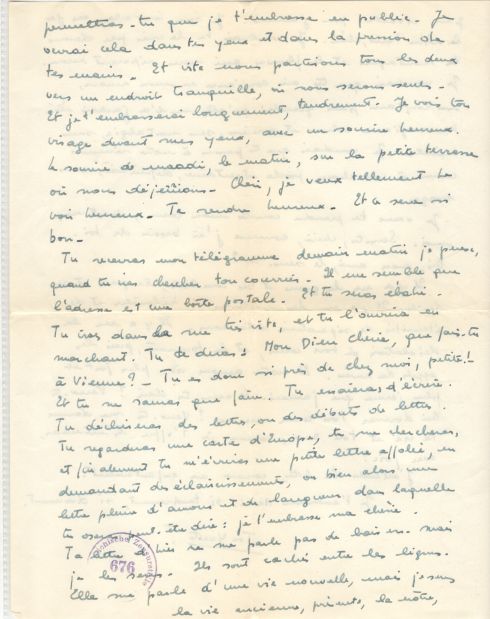 permettras-tu que je t'embrasse en public. Je
verrai cela dans tes yeux et dans la pression de
tes mains. Et vite nous partirons tous les deux
vers un endroit tranquille, où nous serons seuls.
Et je t'embrasserai longuement, tendrement. Je vois ton
visage devant mes yeux, avec un sourire heureux.
Le sourire de maadi, le matin, sur la petite terrasse
où nous déjeûnions. Chéri, je veux tellement te
voir heureux. Te rendre heureux. Et ce sera si
bon.
Tu recevras mon télégramme demain matin je pense,
quand tu iras chercher ton courrier. Il me semble que
l'adresse est une boîte postale. Et tu seras ébahi.
Tu iras dans la rue très vite, et tu l'ouvrira en
marchant. Tu te diras: Mon Dieu Chérie, que fais-tu
à Vienne? - Tu es donc si près de chez moi, petite!-
Et tu ne sauras que faire. Tu essaieras d'écrire.
Tu déchireras des lettres, ou des débuts de lettres.
Tu regarderas une carte d'Europe, tu me chercheras,
et finalement tu m'écriras une petite lettre affolée, en
demandant des éclaircissements, ou bien alors une
lettre pleine d'amour et de langueur dans laquelle
tu oseras peut-être dire: je t'embrasse ma chérie.
Ta lettre d'hier ne me parle pas de baisers. mais
je les sens. Ils sont cachés entre les lignes.
Elle me parle d'une vie nouvelle, mais je sens
la vie ancienne, présente, la nôtre,
676